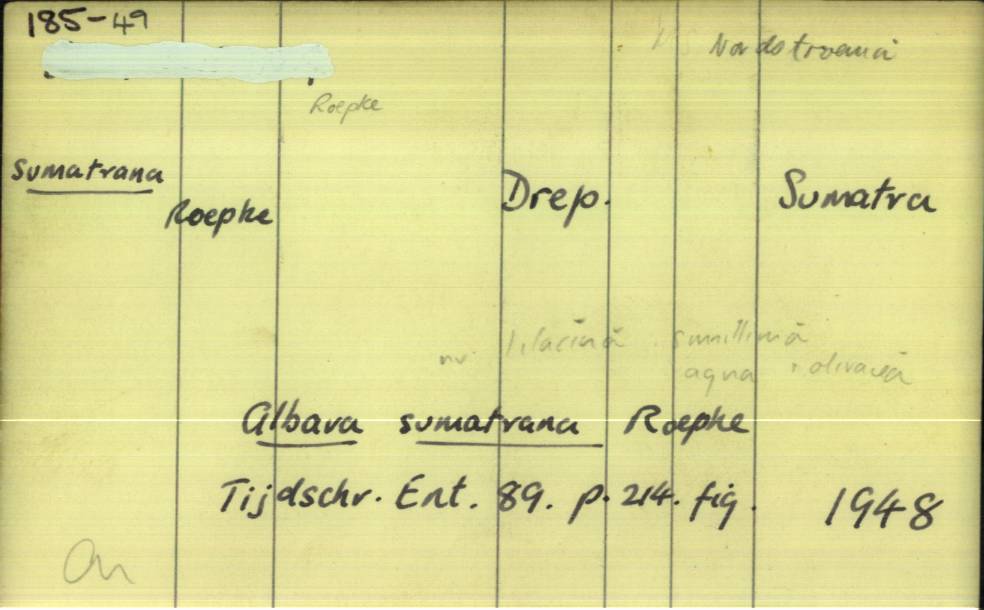 185-49
Nordstroemi
Roepke
sumatrana
Roepke Drep. Sumatra
nr. lilacina simillima
aqua olivacea
Albara sumatrana Roepke
Tijdschr. Ent. 89. p. 214. fig. 1948